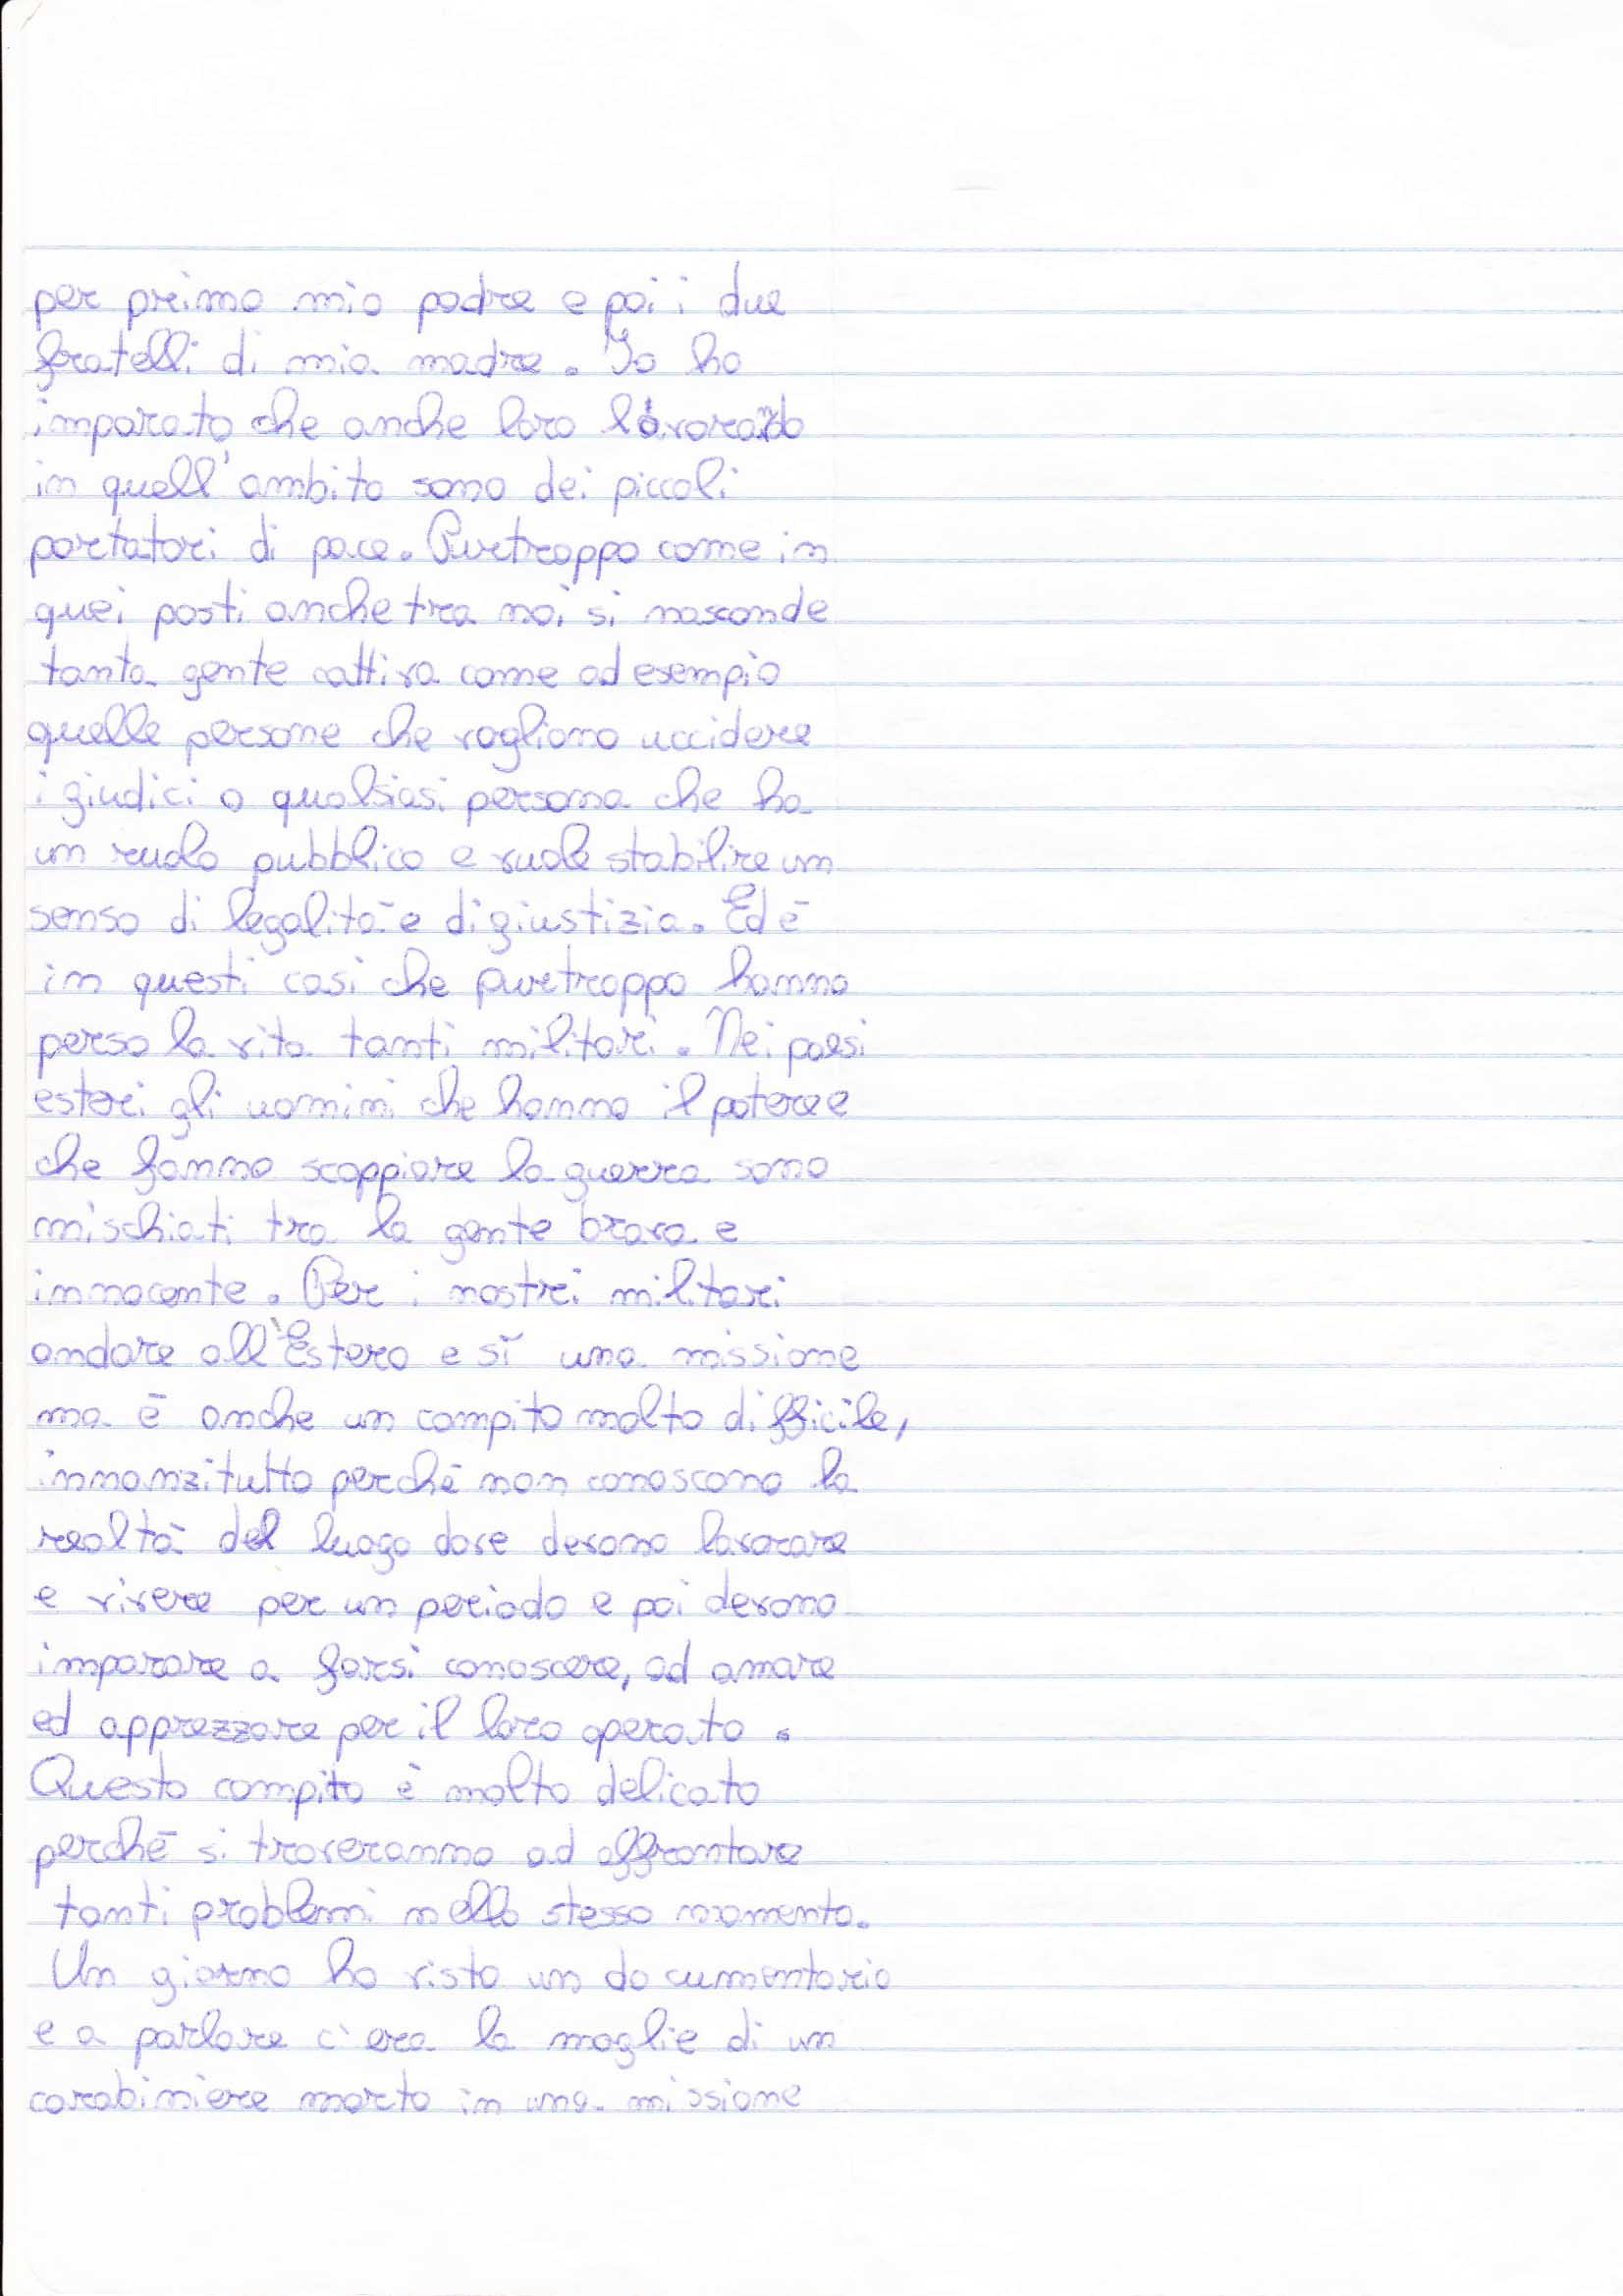 per primo mio padre e poi i due
fratelli di mia madre. Io ho
imparato che anche loro lavorando
in quell'ambito sono dei piccoli
portatori di pace. Purtroppo come in
quei posti anche tra noi si nasconde
tanta gente cattiva come ad esempio
quelle persone che vogliono uccidere
i giudici o qualsiasi persona che ha
un ruolo pubblico e vuole stabilire un
senso di legalità e di giustizia. Ed è
in questi casi che purtroppo hanno
perso la vita tanti militari. Nei paesi
esteri gli uomini che hanno il potere e
che fanno scoppiare la guerra sono
mischiati tra la gente brava e
innocente. Per i nostri militari
andare all'Estero e sì una missione
ma è anche un compito molto difficile,
innanzitutto perché non conoscono la
realtà del luogo dove devono lavorare
e vivere per un periodo e poi devono
imparare a farsi conoscere, ad amare
ed apprezzare per il loro operato.
Questo compito è molto delicato
perché si troveranno ad affrontare
tanti problemi nello stesso momento.
Un giorno ho visto un documentario
e a parlare c'era la moglie di un
carabiniere morto in una missione